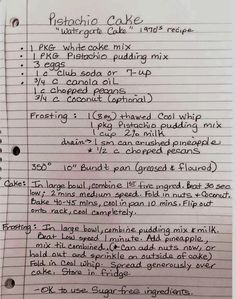 Pistachio Cake
"Watergate Cake" 1970s recipe
• 1 PKG white cake mix
• 1 PKG Pistachio pudding mix
• 3 eggs
• 1 c club soda or 7-up
• 3/4 c canola oil
• 1 c chopped pecans
3/4 c coconut (optional)
Frosting: 1 (8oz) thawed Cool Whip
1 pkg Pistachio pudding mix
1 cup 2% milk
drain → 1 sm can crushed pineapple
* 1/2 c chopped pecans
350° 10" Bundt pan (greased & floured)
Cake: In large bowl, combine 1st five ingred. Beat 30 sec
low; 2 mins medium speed. Fold in nuts & coconut.
Bake 40-45 mins, cool in pan 10 mins. Flip out
onto rack, cool completely.
Frosting: In large bowl, combine pudding mix & milk.
Beat low speed 1 minute. Add pineapple,
mix til combined. (Can add nuts now, or
hold out and sprinkle on outside of cake)
Fold in Cool Whip. Spread generously over
cake. Store in fridge.
-OK to use Sugar-free ingredients.